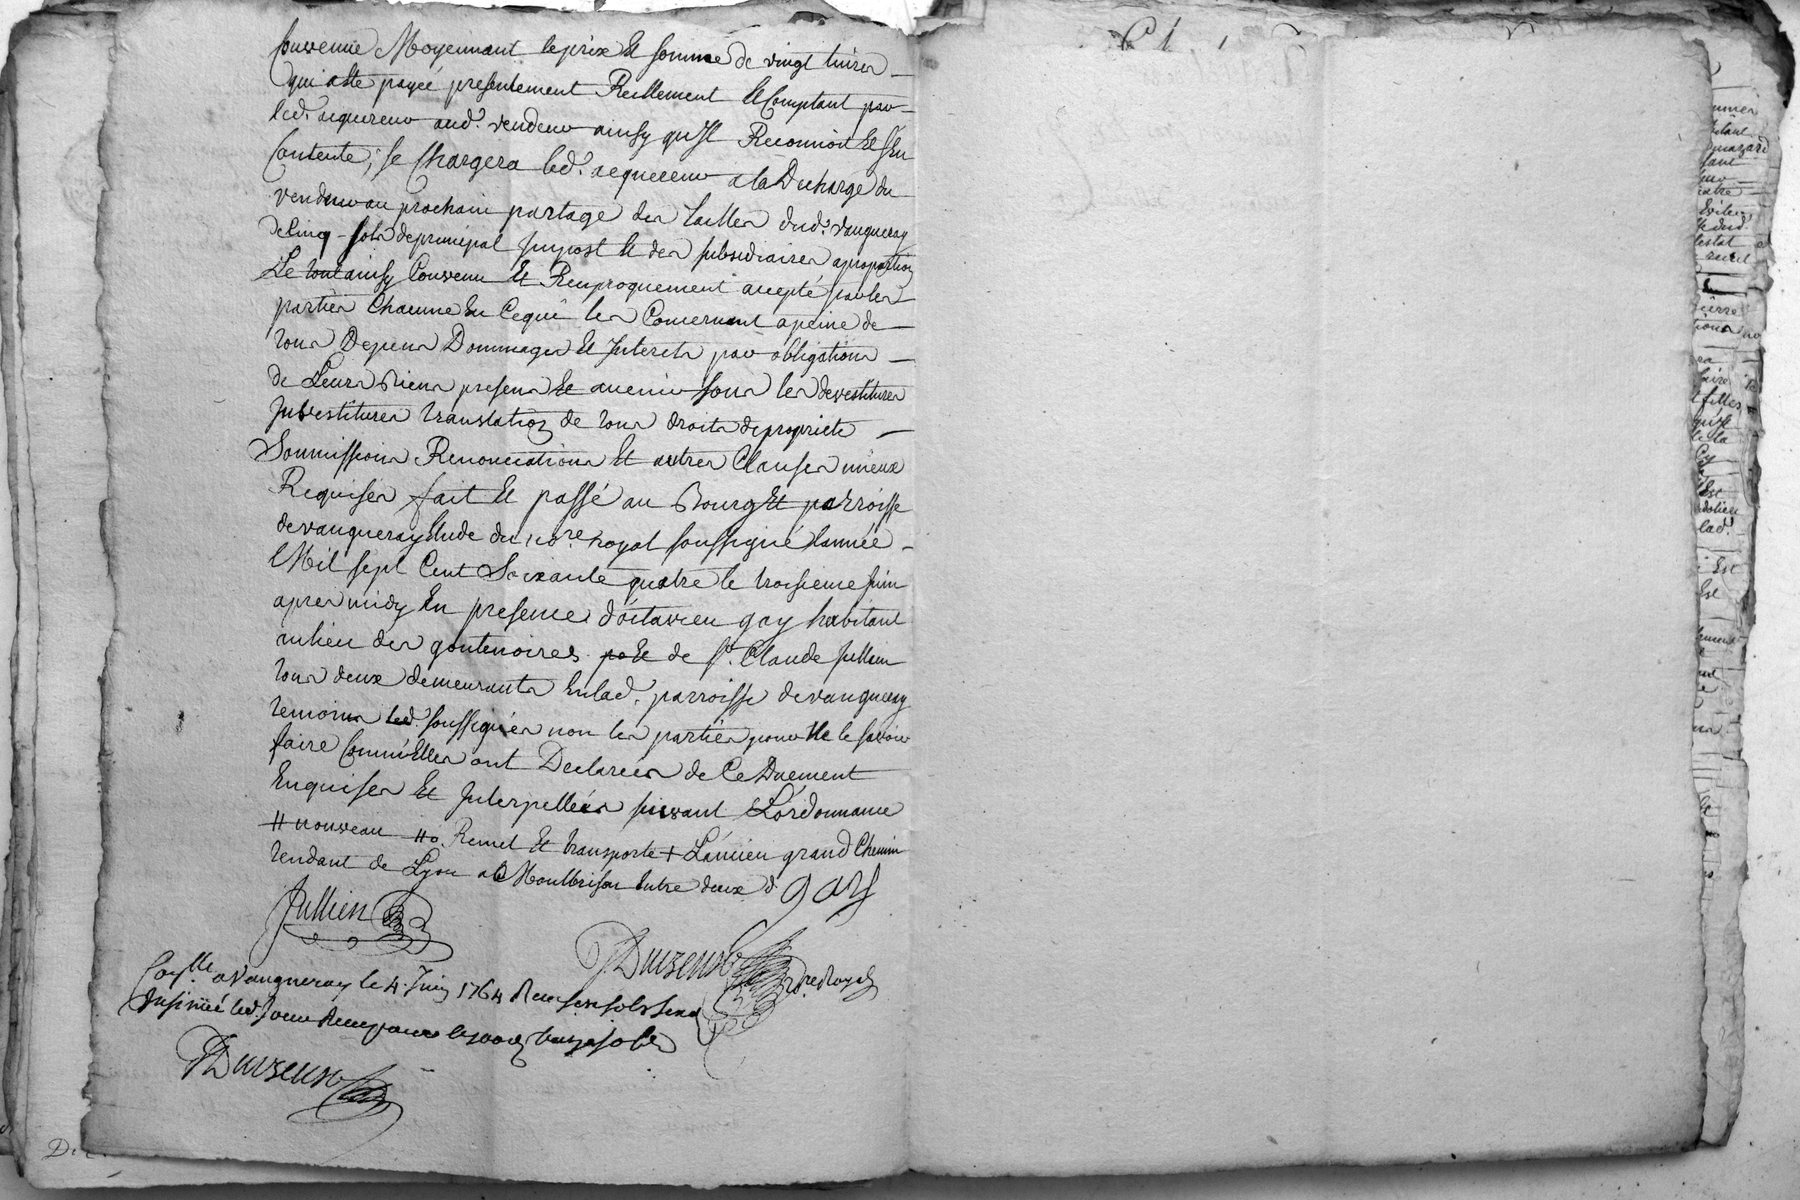 Convenue Moyennant le prix Et somme de vingt livres
qui a este payée presentement Reellement Et Comptant par
led. acquereur aud. vendeur ainsy qu'Il Reconnoit Et s'En
Contente, se Chargera led. acquereur a la Decharge du
vendeur au prochain partage des tailles dud. vaugneray
de Cinq sols de principal Impost Et des subsidiaires a proportion
Le tout ainsy Convenu Et Reciproquement accepté par les
parties Chacune En Ce qui les Concernent a peine de
tous Depens Dommages Et Interets par obligations
de Leurs Biens presens Et avenir sous les devestitures
Investitures translation de tous droits de propriete
Soumissions Renonciations Et autres Clauses mieux
Requises fait Et passé au Bourg Et parroisse
de vaugneray Etude du no.re royal soussigné l'année
Mil sept Cent Soixante quatre le troisieme juin
apres midy En presence d'octavien gay habitant
au lieu des gouttenoires Et de s.r Claude jullien
tous deux demeurants En lad. parroisse de vaugneray
temoins led. soussignés non les parties pour Ne le savoir
faire Comm'Elles ont Declarées de Ce Duement
Enquises Et Interpellées suivant L'ordonnance
# nouveau #o Remet Et transporte + L'ancien grand Chemin
tendant de Lyon a Montbrison Entre deux d. gay
Jullien
Duizend no.re Royal
Con.lle a Vaugneray le 4 Juin 1764 Reçu six sols
Insinué led. jour Reçu pour le 100.e sols
Duizend